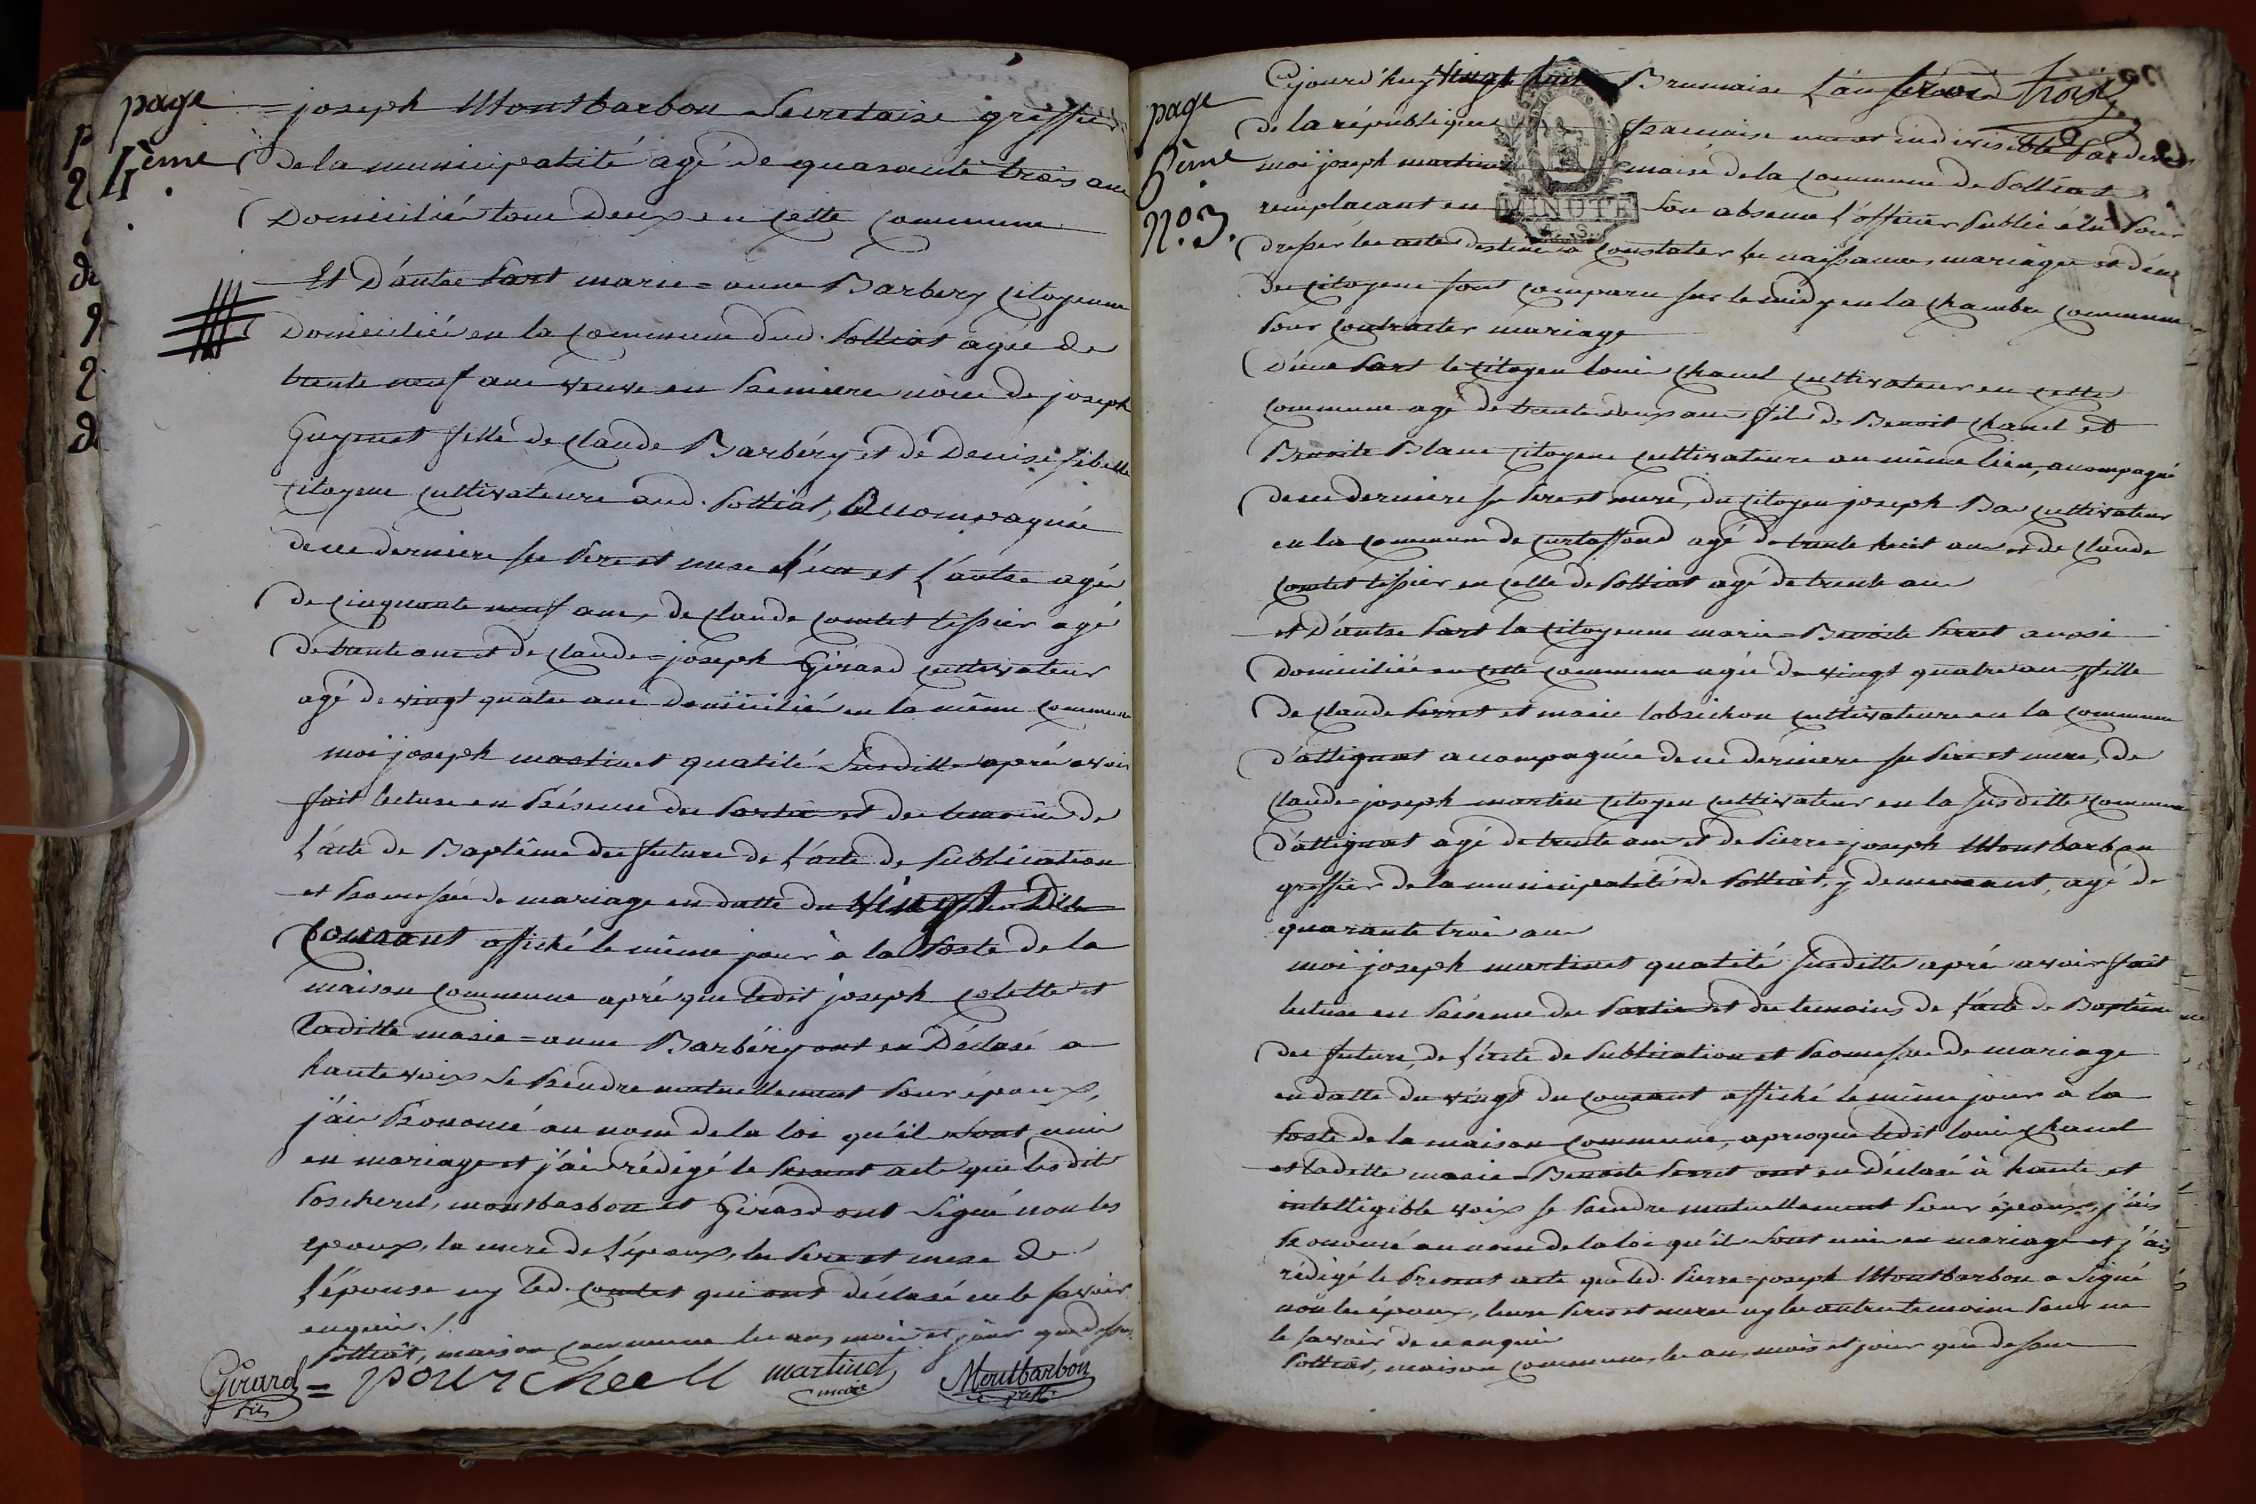 page
4ème
joseph Montbarbon Secretaire greffier
de la municipalité agé de quarante trois ans
Domiciliés tous deux en cette commune
Et D'autre Part marie=anne Barbery citoyenne
Domiciliée en la commune dud. Polliat agée de
trente neuf ans veuve en Premiere nôce de joseph
Guyenet fille de Claude Barbéry et de Denise sibelle
citoyens cultivateurs aud. Polliat, Accompagnée
de ces derniers ses Pere et mere l'un et l'autre agés
de cinquante neuf ans, de Claude comtet tissier agé
de trente ans et de Claude=joseph Girard cultivateur
agé de vingt quatre ans domiciliés en la même commune
moi joseph martinet qualité Susditte après avoir
fait lecture en Présence des Parties et des temoins de
l'acte de Baptême des futurs de l'acte de Publication
et Promesses de mariage en datte du vingt dud.
Courant affiché le même jour à la Porte de la
maison commune après que ledit joseph colette et
laditte marie=anne Barbéry ont eu Déclaré a
haute voix Se Prendre mutuellement Pour époux,
j'ai Prononcé au nom de la loi qu'ils Sont unis
en mariage et j'ai rédigé le Present acte que lesdits
Poscherel, montbarbon et Girard ont Signé non les
époux, la mere de l'époux, les Pere et mere de
l'épouse ny led. comtet qui ont déclaré ne le savoir
enquis ./.
Polliat, maison commune les ans, mois et jour que dessus
Girard
fils
= pourcheell
martinet
maire
Montbarbon
s. greff.
page
6ème
N.º 3.
Cejourd'huy vingt huit Brumaire l'an second trois
de la république française une et indivisible Pardevant
moi joseph martinet maire de la commune de Polliat
remplacant en Son absence l'officier Public élu Pour
MINUTE
dresser les actes destinés à Constater les naissances, mariages et décès
des citoyens sont comparu sur le midy en la chambre commune
Pour contracter mariage
D'une Part le citoyen louis chanel cultivateur en cette
commune agé de trente deux ans fils de Benoit chanel et
Benoite Blanc citoyens cultivateurs au même lieu, accompagné
de ces derniers ses Pere et mere, du citoyen joseph Bas cultivateur
en la commune de curtaffond agé de trente huit ans et de Claude
Comtet tissier en celle de Polliat agé de trente ans
et D'autre Part la citoyenne marie=Benoite Perret aussi
domiciliée en cette commune agée de vingt quatre ans, fille
de Claude Perret et marie lobrichon cultivateurs en la commune
d'attignat accompagnée de ces derniers ses Pere et mere, de
Claude=joseph martin citoyen cultivateur en la susditte commune
d'attignat agé de trente ans et de Pierre=joseph Montbarbon
greffier de la municipalité de Polliat, y demeurant, agé de
quarante trois ans
moi joseph martinet qualité susditte après avoir fait
lecture en Présence des Parties et des temoins de l'acte de Baptême
des futurs, de l'acte de Publication et Promesses de mariage
en datte du vingt du courant affiché le même jour à la
Porte de la maison commune, après que ledit louis chanel
et laditte marie=Benoite Perret ont eu déclaré à haute et
intelligible voix se Prendre mutuellement Pour époux, j'ais
Prononcé au nom de la loi qu'ils Sont unis en mariage et j'ais
rédigé le Present acte que led. Pierre=joseph Montbarbon a Signé
non les époux, leurs Peres et meres ny les autres temoins Pour ne
le savoir de ce enquis
Polliat, maison commune, les ans, mois et jour que dessus